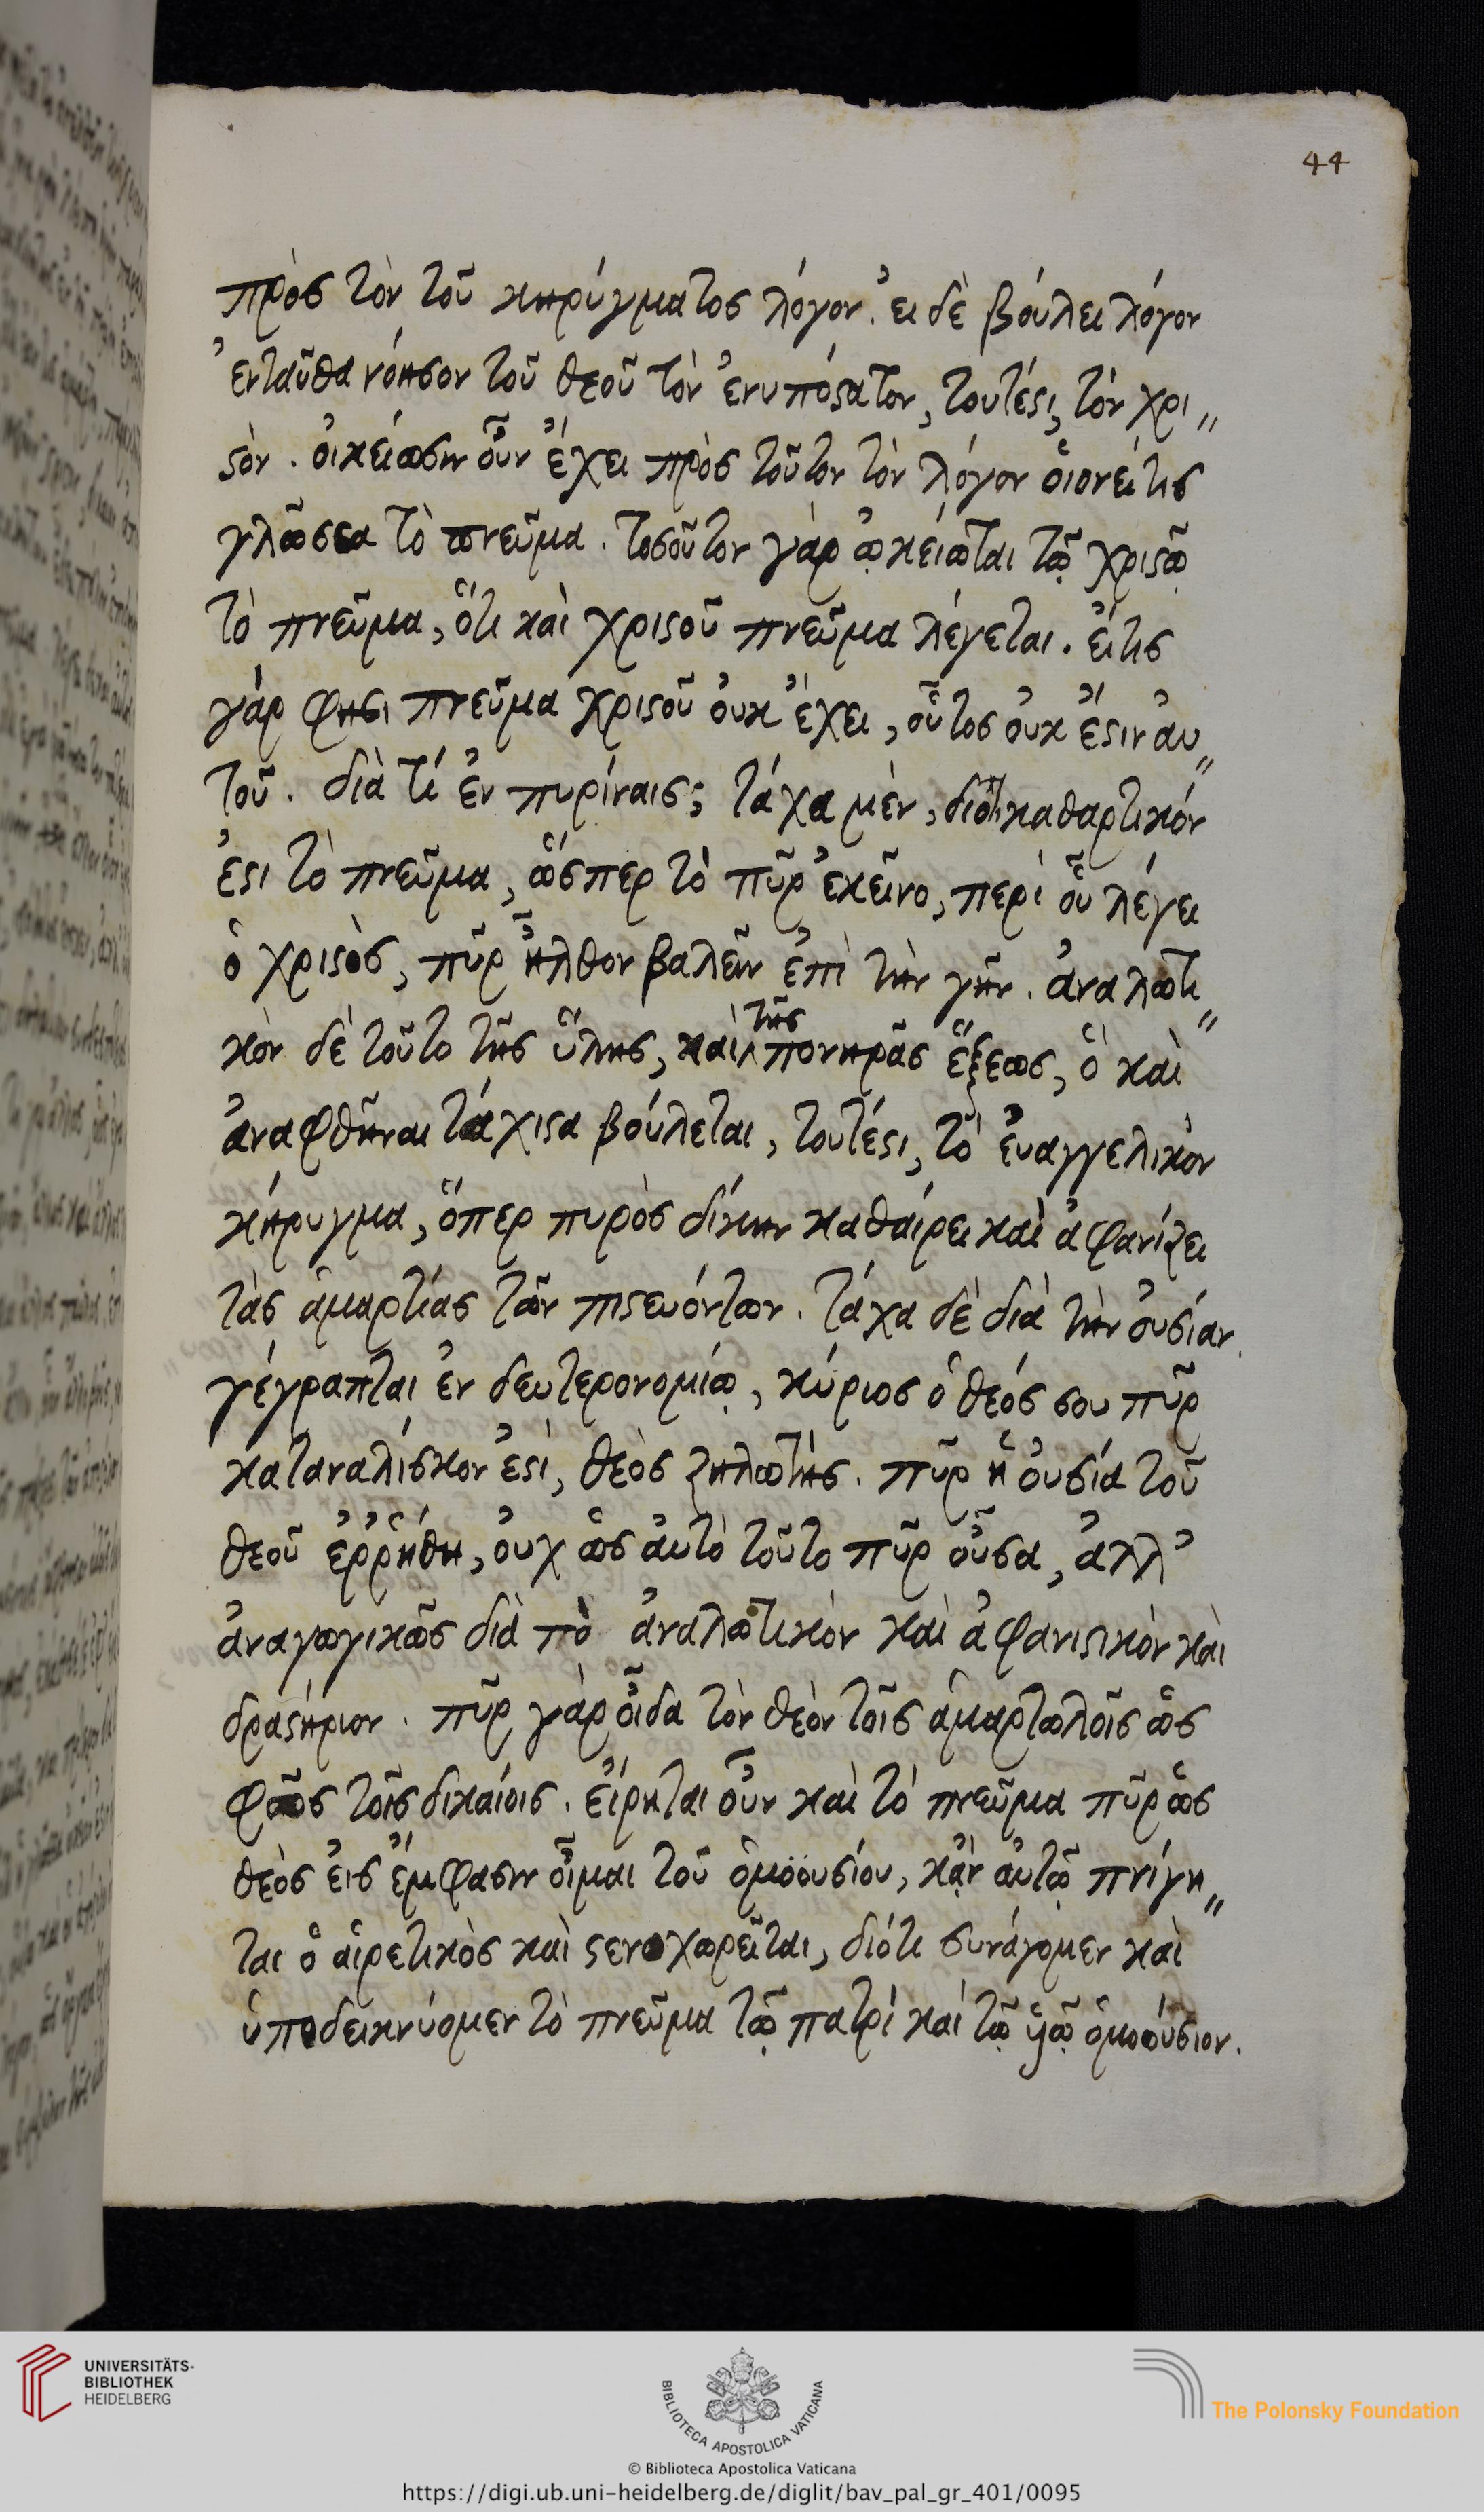 44
πρὸς τὸν τοῦ κηρύγματος λόγον. ἐι δὲ βόυλει λόγον
ἐνταῦθα νόησον τοῦ θεοῦ τὸν ἐνυπόϛατον, τουτέϛι, τὸν χρι〃
ϛὸν. ὀικείωσιν οὖν ἔχει πρὸς τοῦτον τὸν λόγον ὁιονεί τις
γλῶσσα τὸ πνεῦμα. τοσοῦτον γὰρ ᾠκείωται τῷ χριϛῷ
τὸ πνεῦμα, ὅτι καὶ χριϛοῦ πνεῦμα λέγεται. ἔι τις
γὰρ φησι πνεῦμα χριϛοῦ ὀυκ ἔχει, οὗτος ὀυκ ἔϛιν ἀυ〃
τοῦ. διὰ τί ἐν πυρίναις; τάχα μὲν, διότι καθαρτικόν
ἐϛι τὸ πνεῦμα, ὥσπερ τὸ πῦρ ἐκεῖνο, περὶ οὗ λέγει
ὁ χριϛὸς, πῦρ ἦλθον βαλεῖν ἐπὶ τὴν γῆν. ἀναλωτι〃
κὸν δὲ τοῦτο τῆς ὕλης, καὶ τῆς πονηρᾶς ἕξεως, ὃ καὶ
ἀναφθῆναι τάχιϛα βόυλεται, τουτέϛι, τὸ ἐυαγγελικὸν
κήρυγμα, ὅπερ πυρὸς δίκην καθάιρει καὶ ἀφανίζει
τὰς ἁμαρτίας τῶν πιϛευόντων. τάχα δὲ διὰ τὴν ὀυσίαν.
γέγραπται ἐν δευτερονομίῳ, κύριος ὁ θεός σου πῦρ
καταναλίσκον ἐϛὶ, θεὸς ζηλωτὴς. πῦρ ἡ ὀυσία τοῦ
θεοῦ ἐῤῥήθη, ὀυχ ὡς ἀυτὸ τοῦτο πῦρ οὖσα, ἀλλ᾽
ἀναγωγικῶς διὰ τὸ ἀναλωτικὸν καὶ ἀφανιϛικὸν καὶ
δραϛήριον. πῦρ γὰρ οἶδα τὸν θεὸν τοῖς ἁμαρτωλοῖς ὡς
φῶς τοῖς δικαίοις. ἔιρηται οὖν καὶ τὸ πνεῦμα πῦρ ὡς
θεὸς ἐις ἔμφασιν οἶμαι τοῦ ὁμοουσίου, κᾂν ἀυτῷ πνίγη〃
ται ὁ ἁιρετικὸς καὶ ϛενοχωρεῖται, διότι συνάγομεν καὶ
ὑποδεικνύομεν τὸ πνεῦμα τῷ πατρὶ καὶ τῷ ὑῷ ὁμοόυσιον.
UNIVERSITÄTS-
BIBLIOTHEK
HEIDELBERG
BIBLIOTECA APOSTOLICA VATICANA
The Polonsky Foundation
© Biblioteca Apostolica Vaticana
https://digi.ub.uni-heidelberg.de/diglit/bav_pal_gr_401/0095